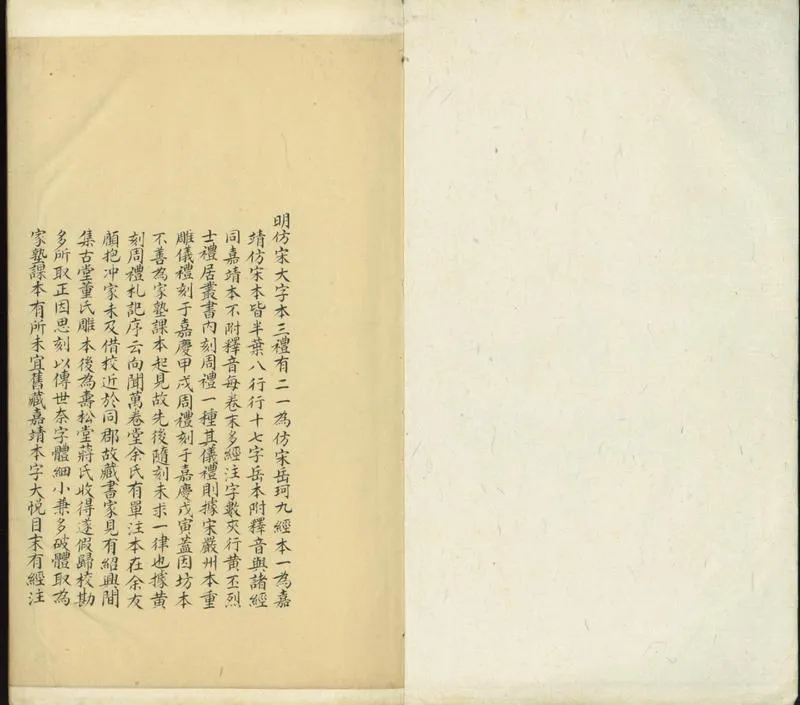 明仿宋大字本三禮有二一為仿宋岳珂九經本一為嘉
靖仿宋本皆半葉八行行十七字岳本附釋音與諸經
同嘉靖本不附釋音每卷末多經注字數夾行黄丕烈
士禮居叢書內刻周禮一種其儀禮則據宋嚴州本重
雕儀禮刻于嘉慶甲戌周禮刻于嘉慶戊寅蓋因坊本
不善為家塾課本起見故先後隨刻未求一律也據黄
刻周禮札記序云向聞萬卷堂余氏有單注本在余友
顧抱冲家未及借校近於同郡故藏書家見有紹興間
集古堂董氏雕本後為壽松堂蔣氏收得遂假歸校勘
多所取正因思刻以傳世奈字體細小兼多破體取為
家塾課本有所未宜舊藏嘉靖本字大悅目末有經注